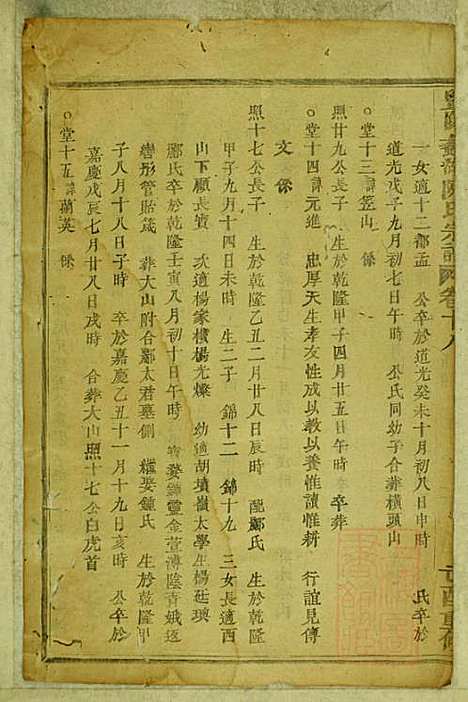 一女適十二都孟 公卒於道光癸未十月初八日申時 氏卒於
道光戊子九月初七日午時 公氏同幼子合葬橫頭山
○堂十三諱登山 係
照廿九公長子 生於乾隆甲子四月廿五日午時 卒葬
○堂十四諱元進 忠厚天生孝友性成以教以養惟讀惟耕 行誼見傳
文 係
照十七公長子 生於乾隆乙丑二月廿八日辰時 配鄭氏 生於乾隆
甲子九月十四日未時 生二子 錦十二 錦十九 三女長適西
山下顧長賓 次適楊家橫楊光燦 幼適胡墳嶺太學生楊廷瑛
鄭氏卒於乾隆壬寅八月初十日午時 寶婺 靈金萱薄陰青娥返
彤管貽箴 葬大山附合鄭太君墓側 繼娶鍾氏 生於乾隆甲
子八月十八日子時 卒於嘉慶乙丑十一月十九日亥時 公卒於
嘉慶戊辰七月廿八日戌時 合葬大山照十七公白虎首
○堂十五諱蘭英 係
氏宗譜 卷十八
重修